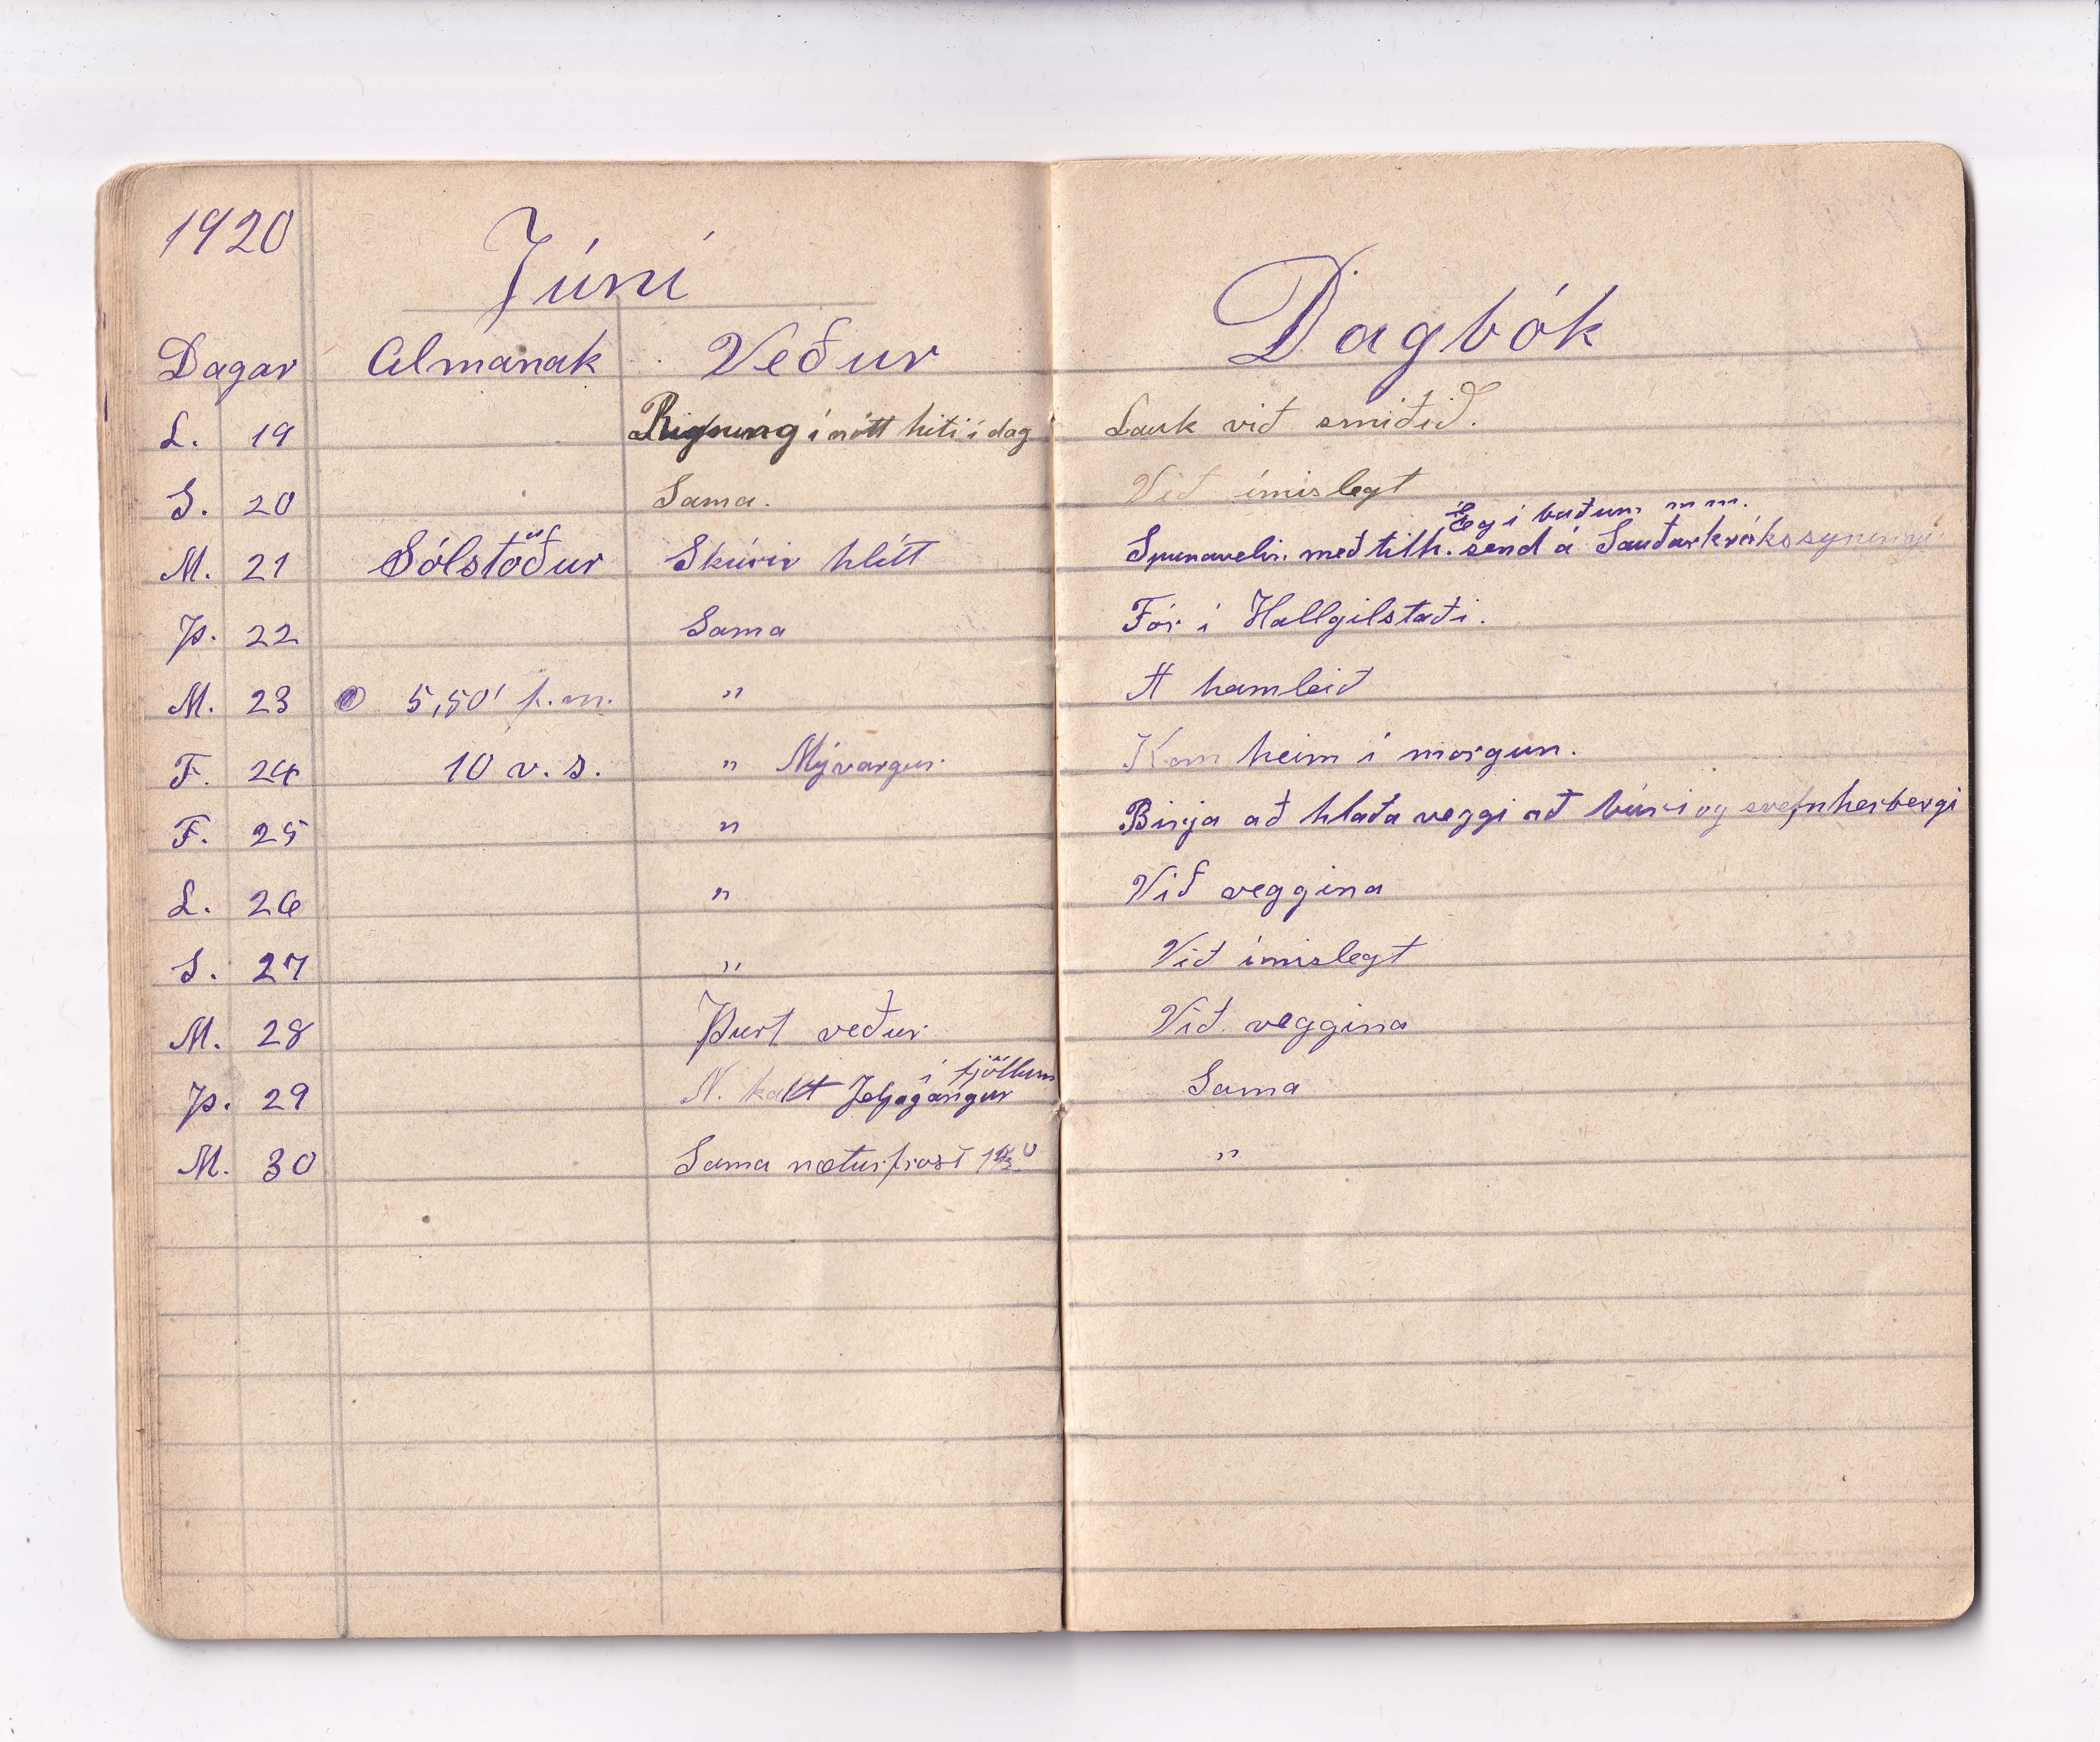 1920
Júni
Dagbók
Dagar Almanak Veður
L. 19 Rigning í nótt hiti í dag Lauk við smiðið.
S. 20 Sama. Við ímislegt
Eg í buðum m m.
M. 21 Sólstöður Skúrir hlítt Spunavelin með tilh. send á Sauðarkróks
Þ. 22 Sama Fór í Hallgilstaði.
M. 23 5,50' f.m. " A hamleið
F. 24 10 v. s. " Mývargur. Kom heim í morgun.
F. 25 " Birja að hlaða veggi að búri og svefnherbergi
L. 26 " Við veggina
S. 27 " Við ímislegt
M. 28 Þurt veður. Við veggina
í fjöllum
Þ. 29 N. kalt Jeljagangur Sama
M. 30 Sama næturfrost "